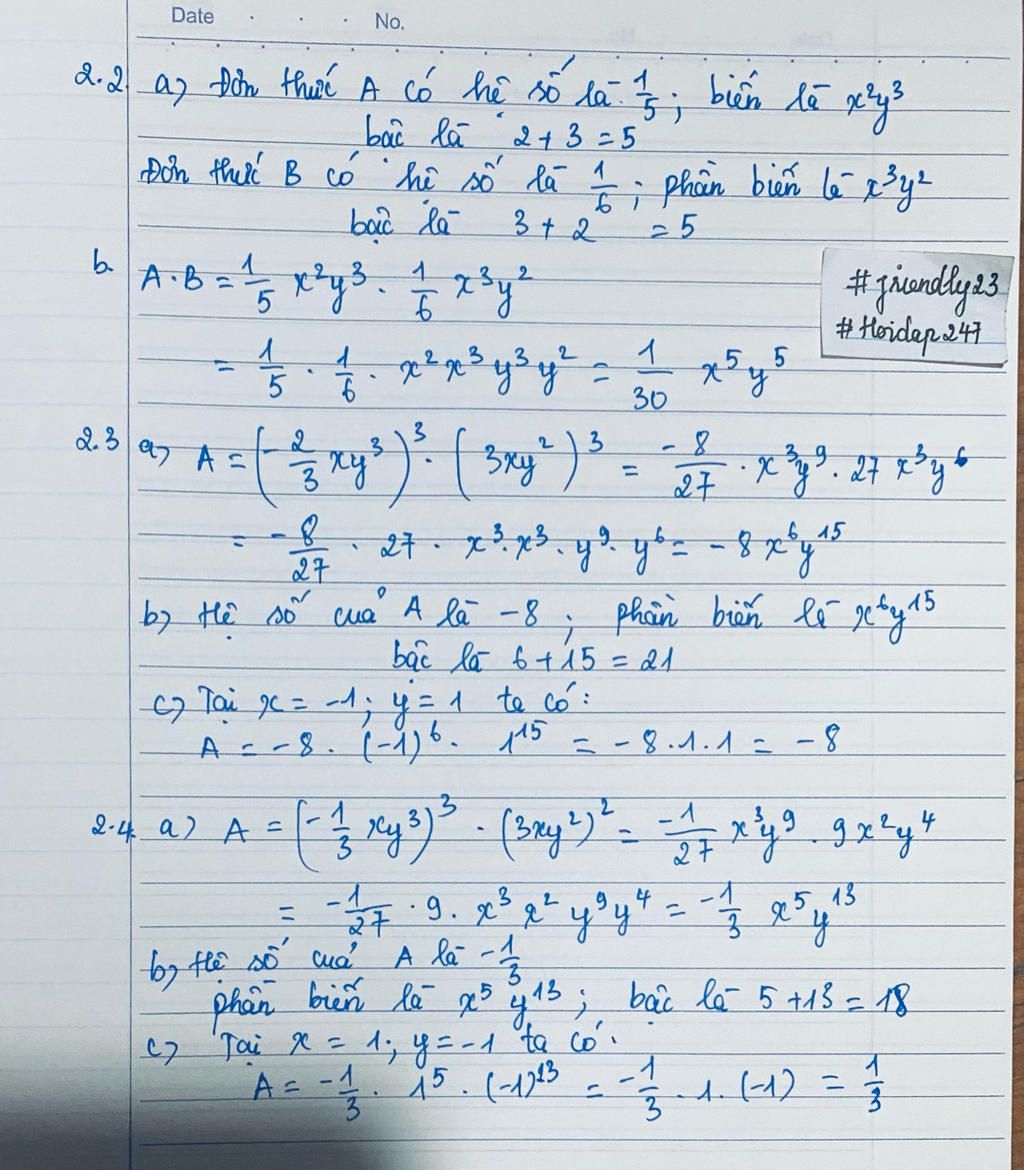 Date . . . No.
2.2 a) Đơn thức A có hệ số là 1/5; biến là x²y³
bậc là 2 + 3 = 5
Đơn thức B có hệ số là 1/6; phần biến là x³y²
bậc là 3 + 2 = 5
b. A.B = 1/5 x²y³ . 1/6 x³y²
#friendly23
#Hoidap247
= 1/5 . 1/6 . x² x³ y³ y² = 1/30 x⁵y⁵
2.3 a) A = (-2/3 xy³)³ . (3xy²)³ = -8/27 . x³y⁹ . 27 x³y⁶
= -8/27 . 27 . x³.x³.y⁹.y⁶ = -8x⁶y¹⁵
b) Hệ số của A là -8; phần biến là x⁶y¹⁵
bậc là 6 + 15 = 21
c) Tại x = -1; y = 1 ta có:
A = -8 . (-1)⁶ . 1¹⁵ = -8.1.1 = -8
2.4 a) A = (-1/3 xy³)³ . (3xy²)² = -1/27 x³y⁹ . 9x²y⁴
= -1/27 . 9 . x³ x² y⁹y⁴ = -1/3 x⁵y¹³
b) Hệ số của A là -1/3
phần biến là x⁵y¹³; bậc là 5 + 13 = 18
c) Tại x = 1; y = -1 ta có:
A = -1/3 . 1⁵ . (-1)¹³ = -1/3 . 1 . (-1) = 1/3